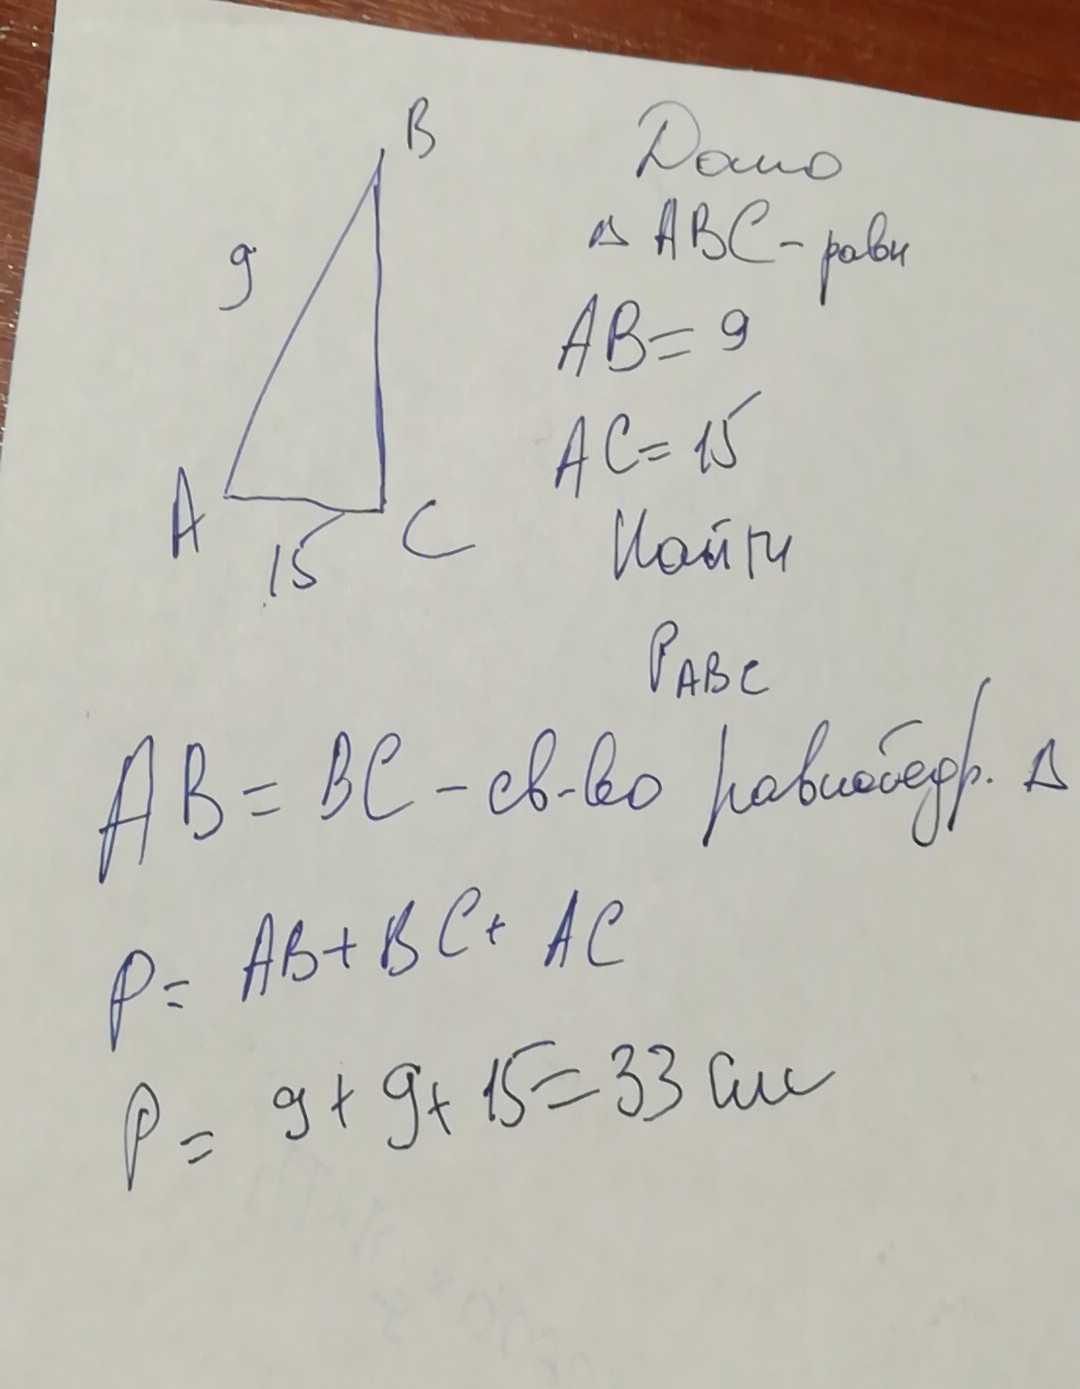 B
Дано
9
△ ABC - равн
AB = 9
AC = 15
A
C
15
Найти
P ABC
AB = BC - св-во равнобедр. △
P = AB + BC + AC
P = 9 + 9 + 15 = 33 см